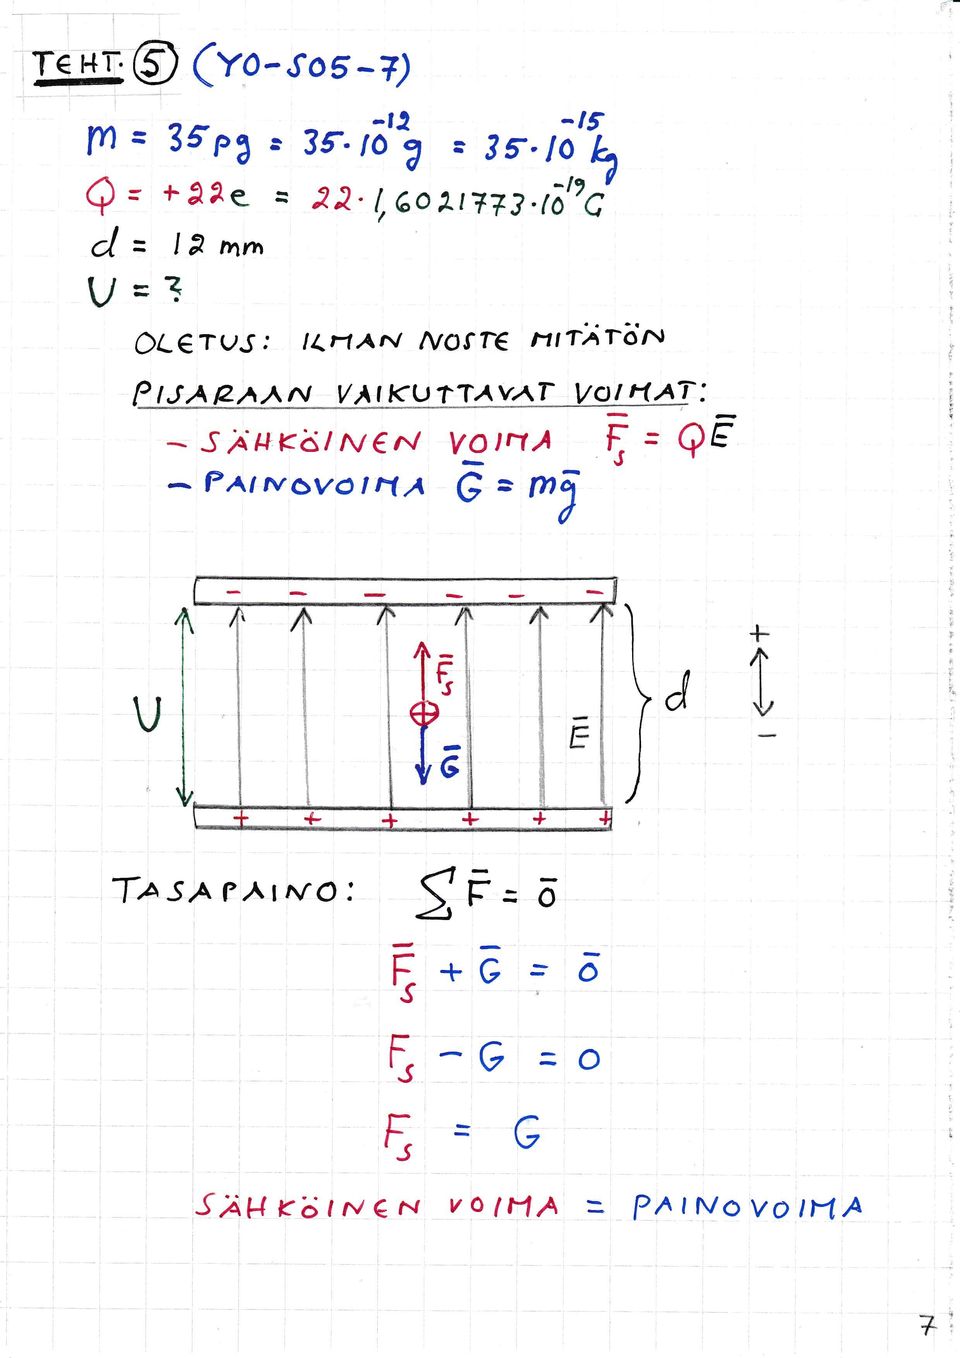 TEHT. 5 (YO-S05-7)
m = 35 pg = 35·10⁻¹² g = 35·10⁻¹⁵ kg
Q = +22e = 22·1,6021773·10⁻¹⁹ C
d = 12 mm
U = ?
OLETUS: ILMAN NOSTE MITÄTÖN
PISARAAN VAIKUTTAVAT VOIMAT:
- SÄHKÖINEN VOIMA F̄ₛ = QĒ
- PAINOVOIMA Ḡ = mḡ
- - - - - -
U F̄ₛ Ḡ Ē d + -
+ + + + + +
TASAPAINO: ∑F̄ = 0̄
F̄ₛ + Ḡ = 0̄
Fₛ - G = 0
Fₛ = G
SÄHKÖINEN VOIMA = PAINOVOIMA
7